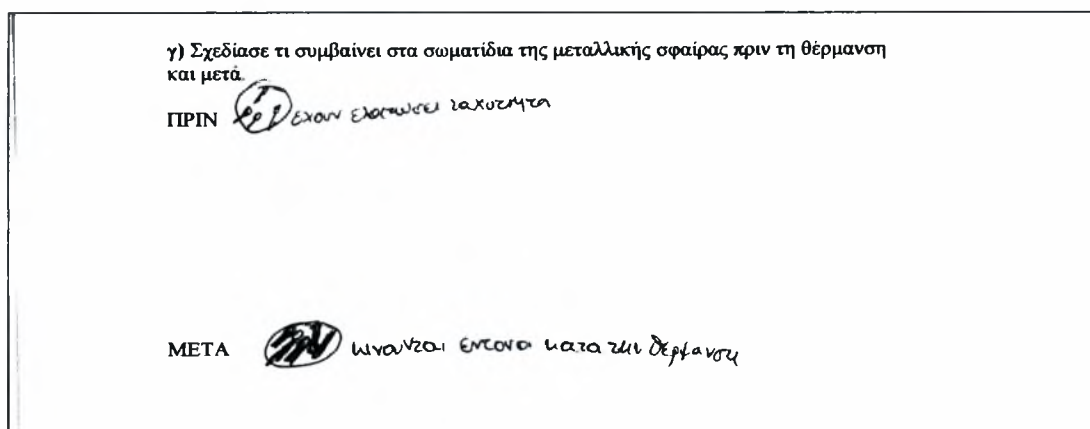 γ) Σχεδίασε τι συμβαίνει στα σωματίδια της μεταλλικής σφαίρας πριν τη θέρμανση
και μετά.
ΠΡΙΝ έχουν ελαττώσει ταχύτητα
ΜΕΤΑ κινούνται έντονα κατά την θέρμανση